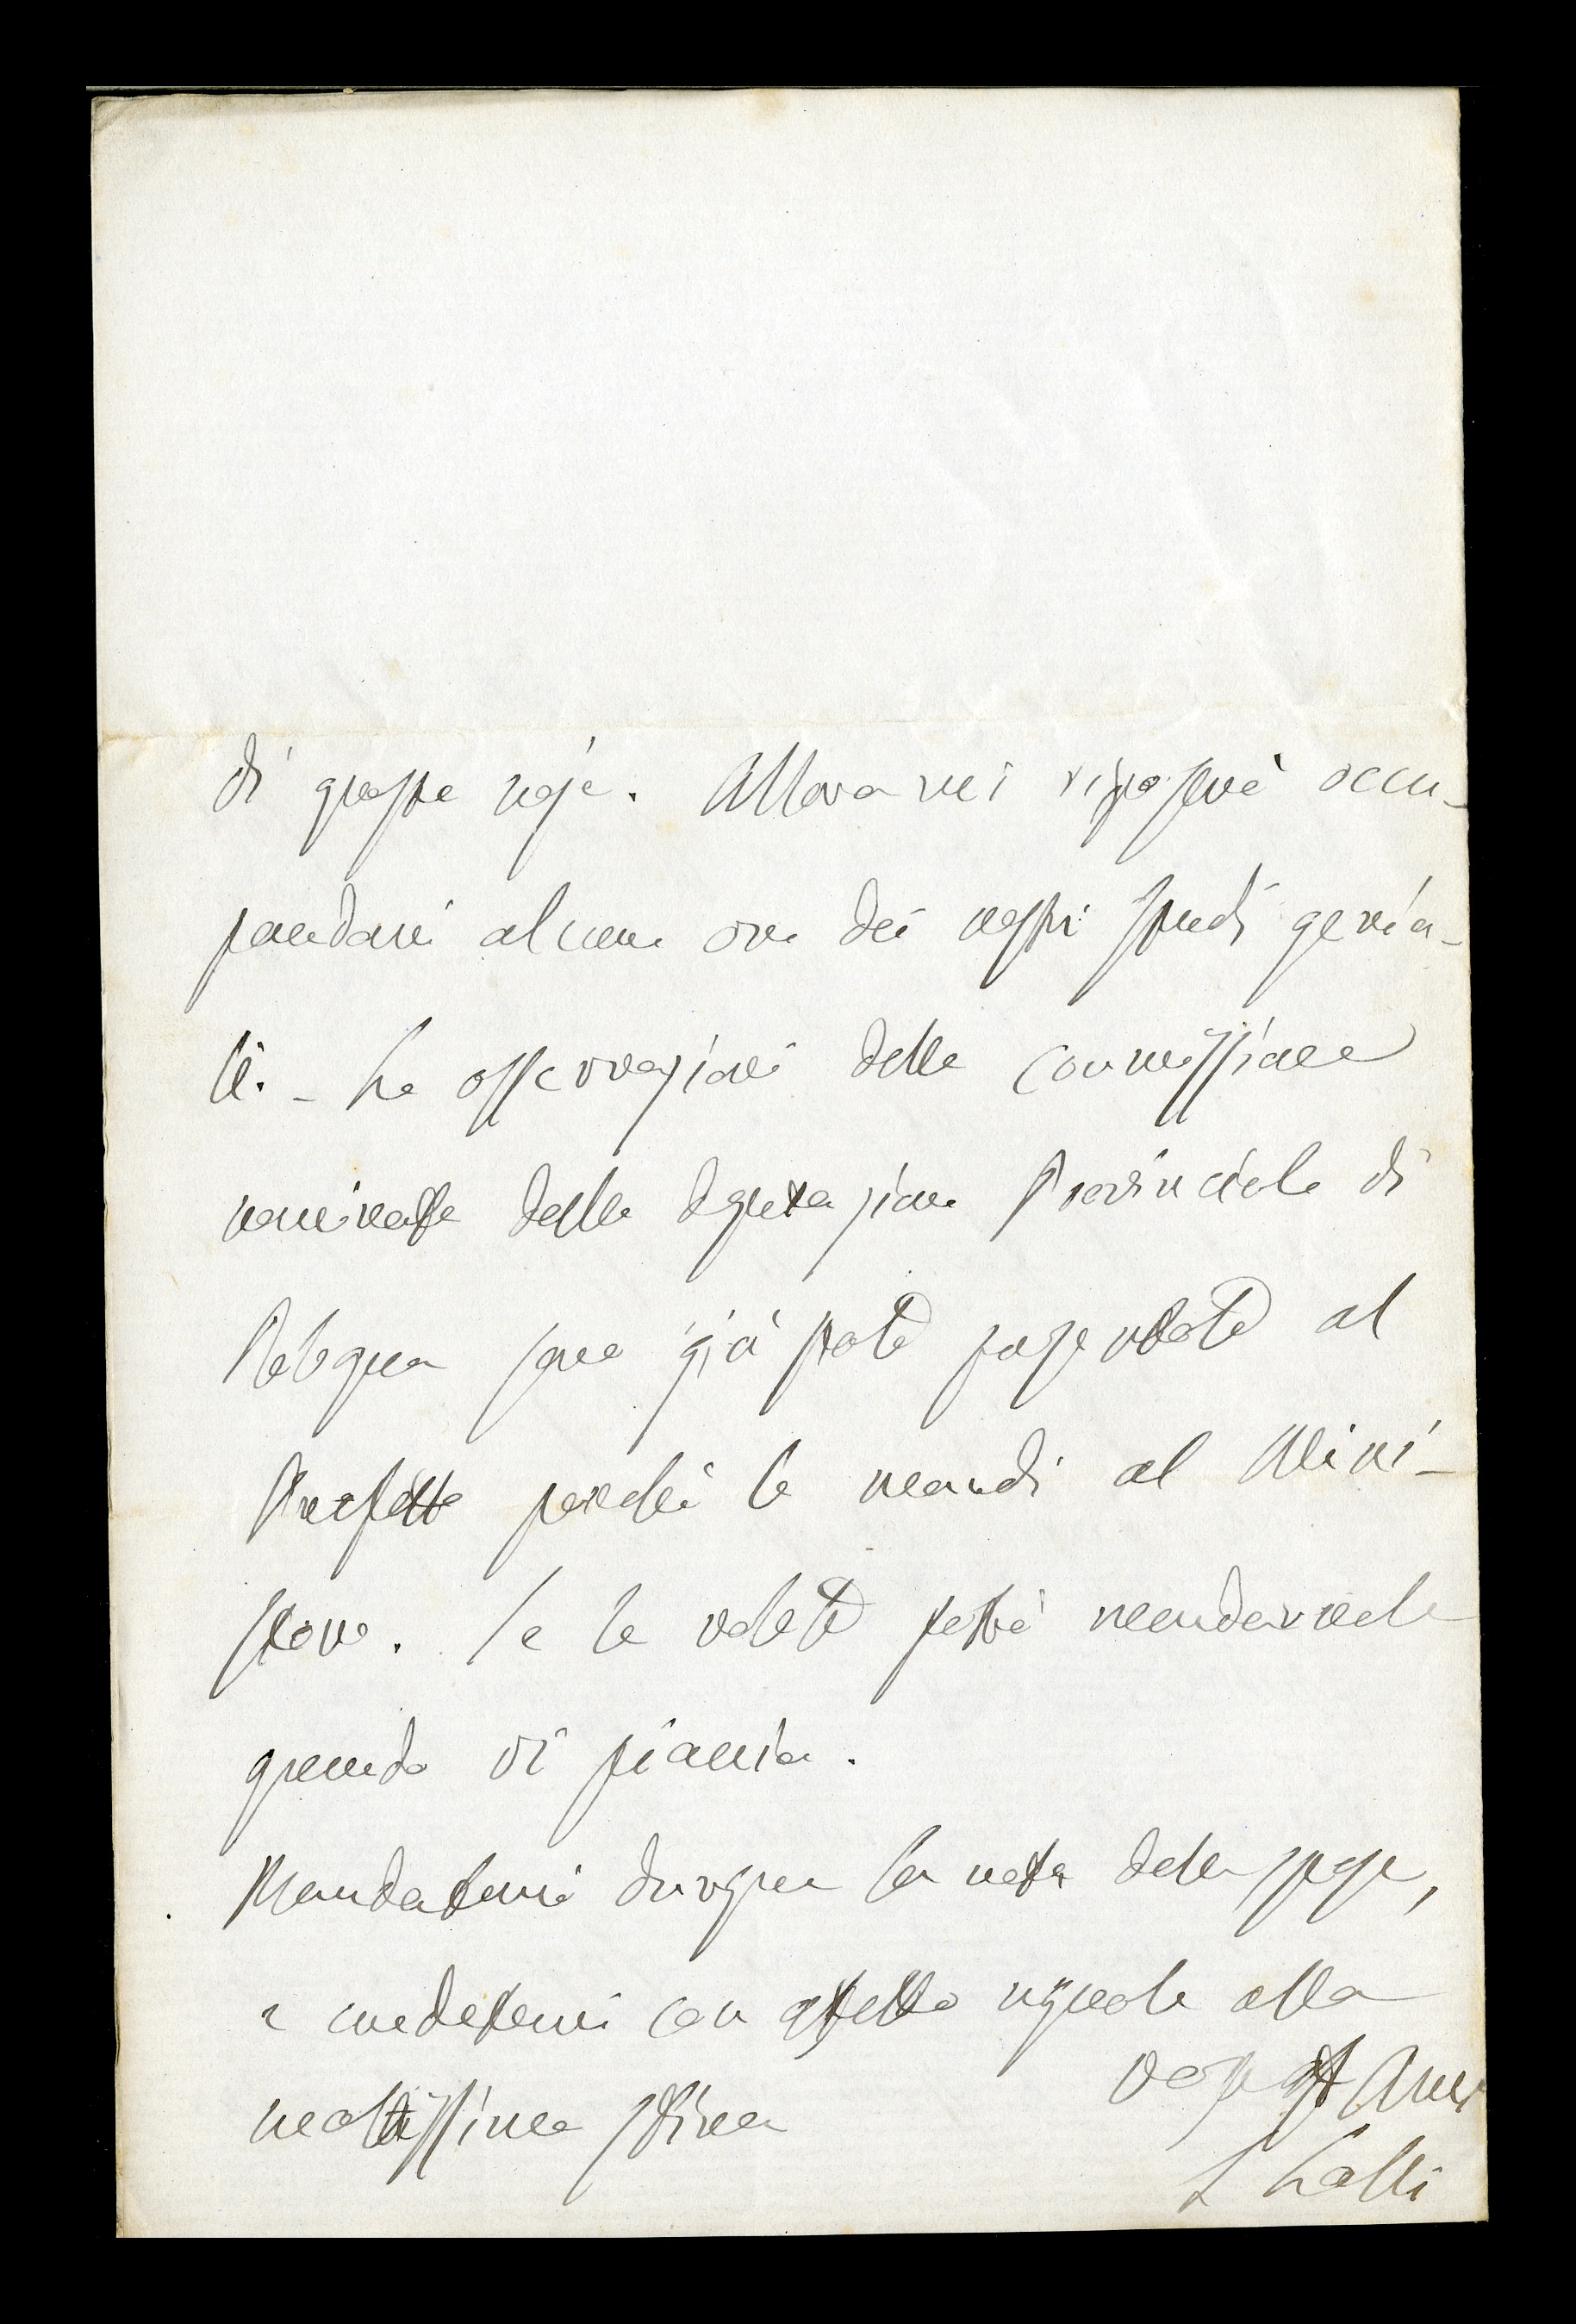 di queste noje. Allora mi riposerò occu-
pandomi alcune ore dei vostri studi genia-
li. - Le osservazioni della Commissione
nominata dalla Deputazione Provinciale di
Bologna sono già state presentate al
Prefetto perchè le mandi al Mini-
stero. Se le volete potrò mandarvele
quando vi piaccia.
Mandatemi dunque la nota delle spese,
e credetemi con affetto uguale alla
moltissima stima
Vos aff Amico
L